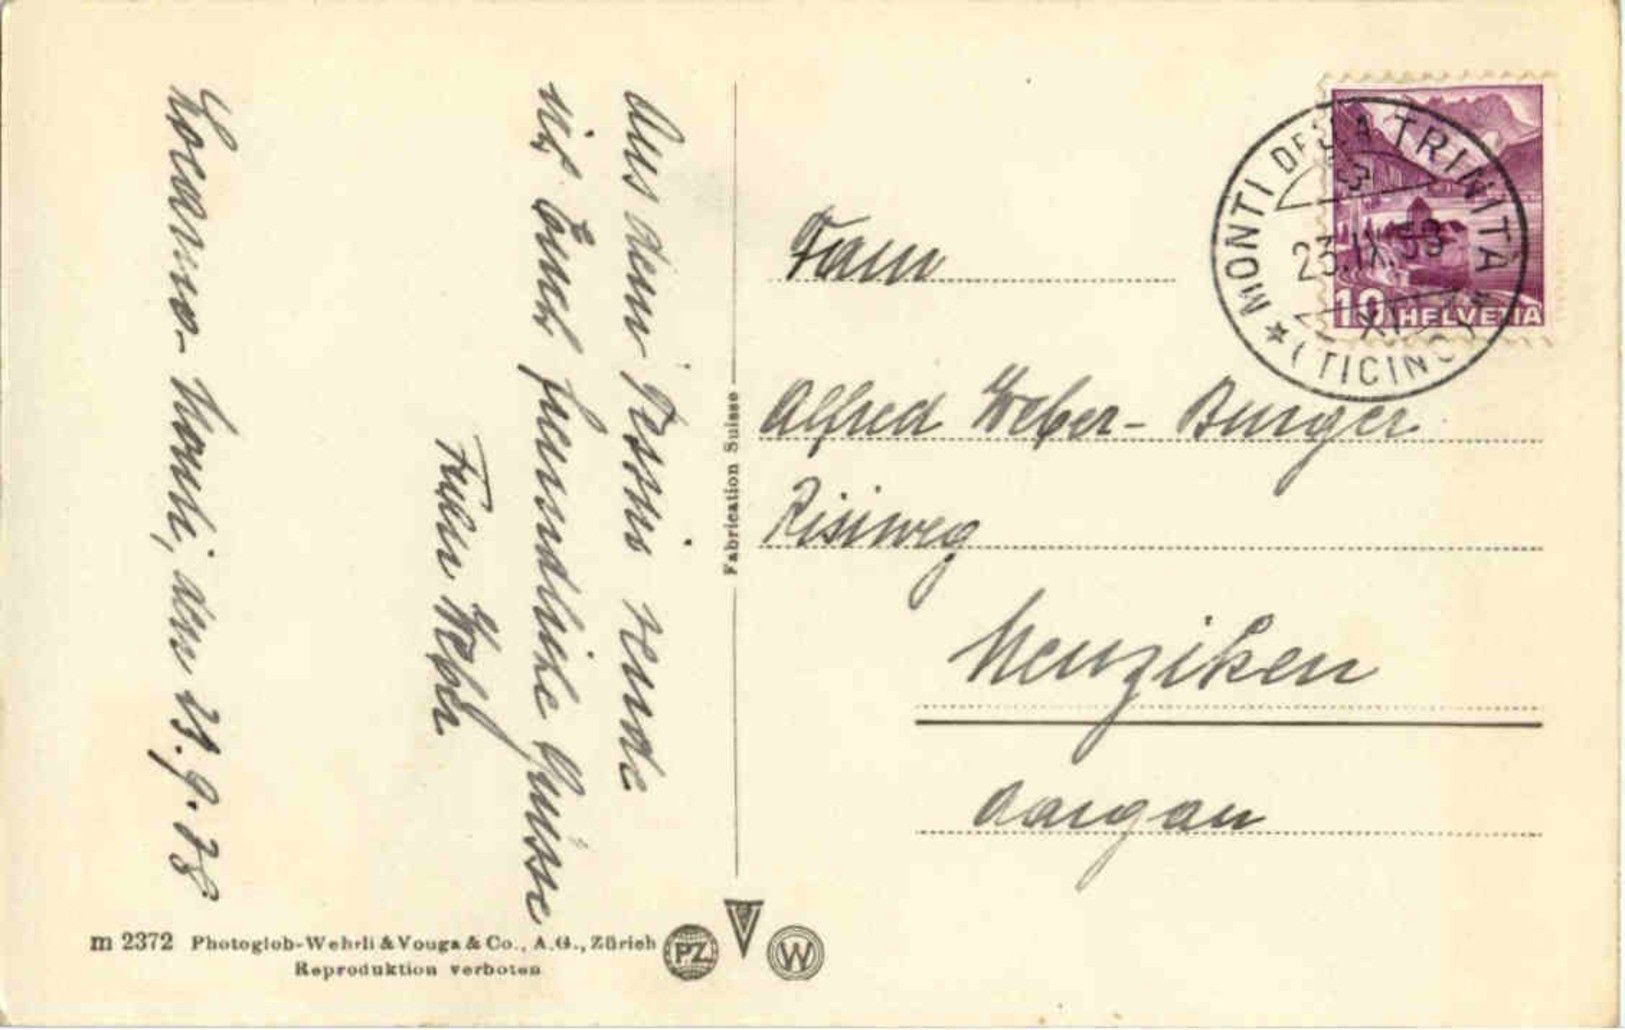 Aus dem Tessin sende
ich Euch freundliche Grüsse
Weber
Locarno-Monti, den 23.9.38
Fam
Alfred Weber-Burger
Risiweg
Menziken
Aargau
MONTI DELLA TRINITÀ
23.IX.38
(TICINO)
10 HELVETIA
Fabrication Suisse
m 2372 Photoglob-Wehrli & Vouga & Co., A.G., Zürich
Reproduktion verboten
PZ V W